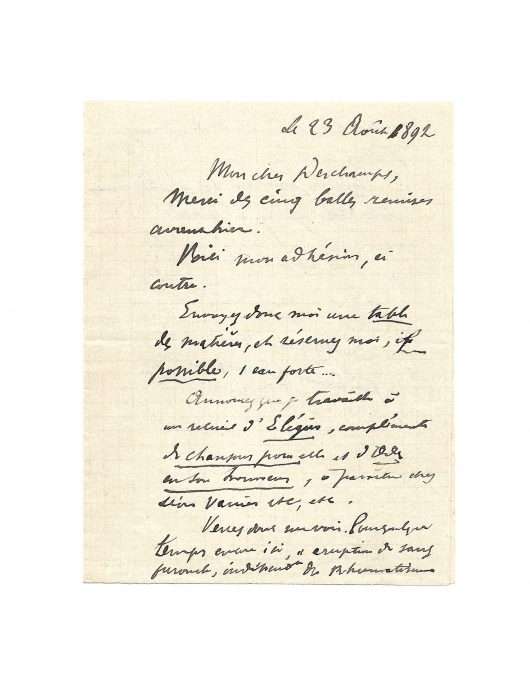 le 23 Août 1892
Mon cher Deschamps,
Merci des cinq balles remises
avant hier.
Voici mon adhésion, ci
contre.
Envoyez donc moi une table
des matières, et réservez moi, si
possible, 1 eau forte...
Annoncez que je travaille à
un recueil d'Elégies, complément
de chansons pour elle et d'Odes
en son honneur, à paraître chez
Vanier etc, etc.
Venez donc me voir. Pour quelque
temps encore ici, éruption de sang
furoncle, de Rhumatisme